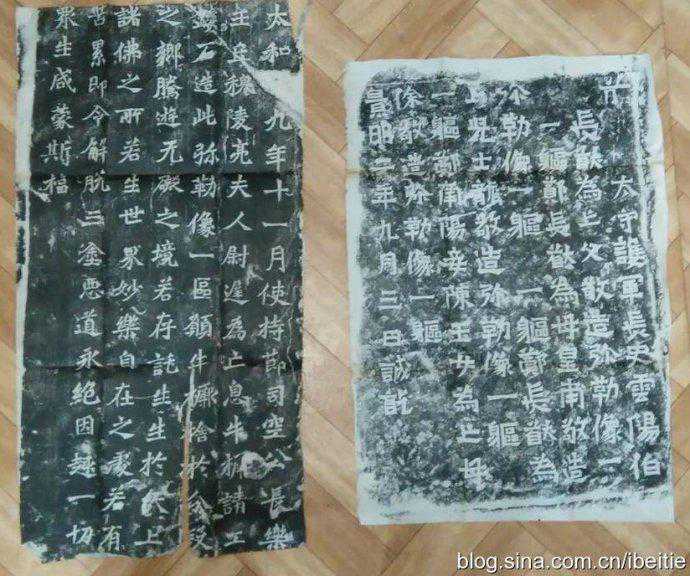 太和九年十一月使持節司空公長樂
王丘穆陵亮夫人尉遲為亡息牛橛請工
鏤石造此弥勒像一區願牛橛捨於分段
之鄉騰遊无礙之境若存託生生於天上
諸佛之所若生世界妙樂自在之處若有
苦累即令解脱三塗惡道永絶因趣一切
眾生咸蒙斯福
太守護軍長史雲陽伯
長猷為亡父敬造弥勒像一
一軀鄭長猷為母皇甫敬造
弥勒像一軀一軀鄭長猷為
亡兒士龍敬造弥勒像一軀
一軀鄭南陽妾陳玉女為亡母
徐敬造弥勒像一軀
景明二年九月三日誡訖
blog.sina.com.cn/ibeitie